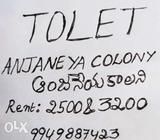 TOLET
ANJANEYA COLONY
ఆంజనేయ కాలని
Rent: 2500 & 3200
9949887423
OLX